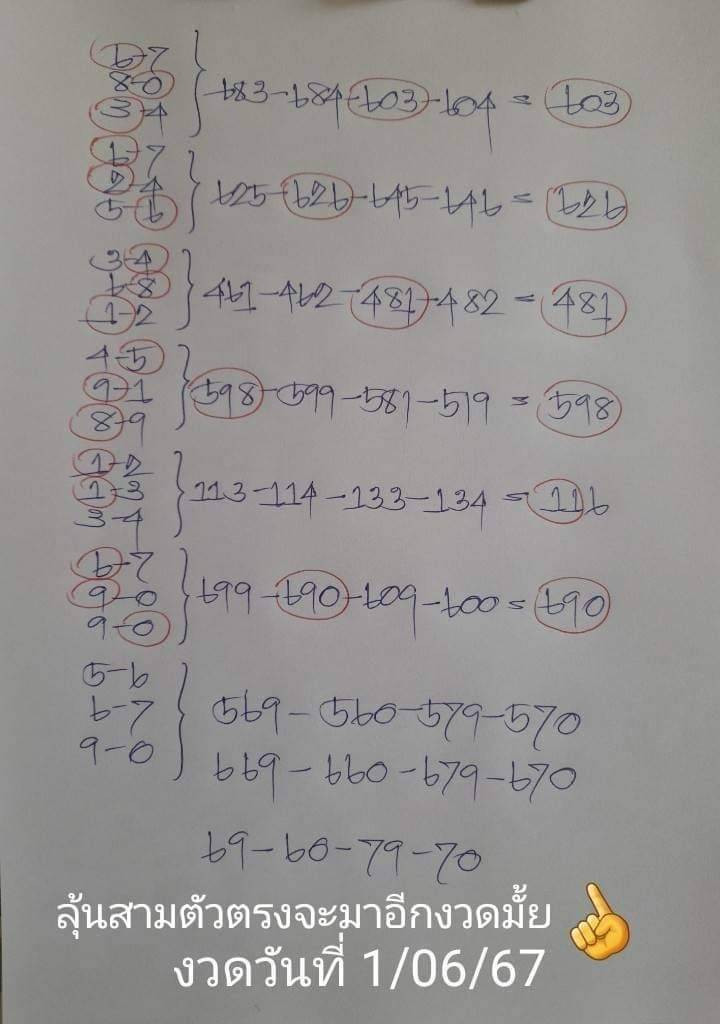 6-7
8-0
3-4
683-684-603-604 = 603
6-7
2-4
5-6
625-626-645-646 = 626
3-4
6-8
1-2
461-462-481-482 = 481
4-5
9-1
8-9
598-599-581-519 = 598
1-2
1-3
3-4
113-114-133-134 = 116
6-7
9-0
9-0
699-690-609-600 = 690
5-6
6-7
9-0
569-560-579-570
669-660-679-670
69-60-79-70
ลุ้นสามตัวตรงจะมาอีกงวดมั้ย
งวดวันที่ 1/06/67